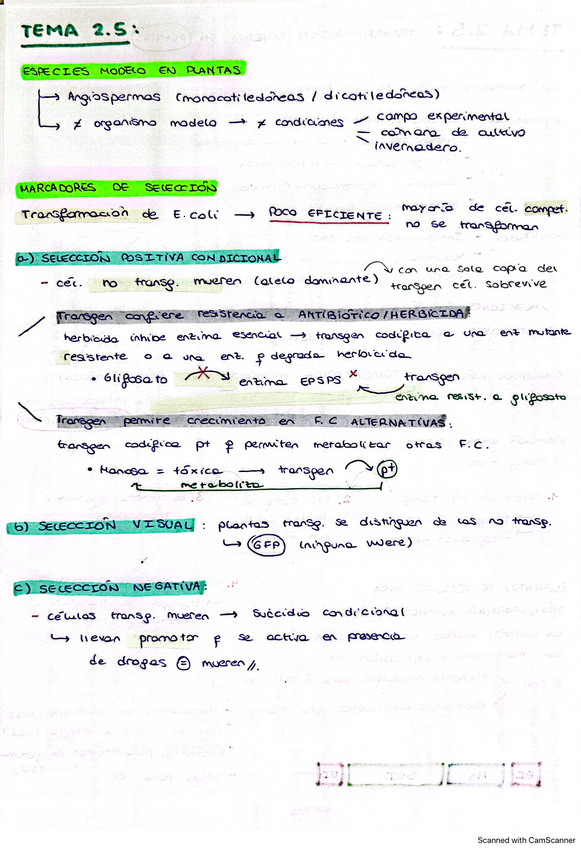 TEMA 2.5:
ESPECIES MODELO EN PLANTAS
↳ Angiospermas (monocotiledóneas / dicotiledóneas)
↳ ≠ organismo modelo → ≠ condiciones
campo experimental
cámara de cultivo
invernadero.
MARCADORES DE SELECCIÓN
Transformación de E.coli → POCO EFICIENTE: mayoría de cél. compet.
no se transforman
a) SELECCIÓN POSITIVA CONDICIONAL
- cél. no transg. mueren (alelo dominante)
con una sola copia del
transgen cél. sobrevive
Transgen confiere resistencia a ANTIBIÓTICO/HERBICIDA:
herbicida inhibe enzima esencial → transgen codifica a una enz mutante
resistente o a una enz. q degrada herbicida
• Glifosato x enzima EPSPS x transgen
enzima resist. a glifosato
Transgen permite crecimiento en F.C ALTERNATIVAS:
transgen codifica pt q permiten metabolizar otras F.C.
• Manosa = tóxica → transgen pt
metaboliza
b) SELECCIÓN VISUAL: plantas transg. se distinguen de las no transg.
↳ GFP (ninguna muere)
c) SELECCIÓN NEGATIVA:
- células transg. mueren → suicidio condicional
↳ llevan promotor q se activa en presencia
de drogas = mueren//.
Scanned with CamScanner